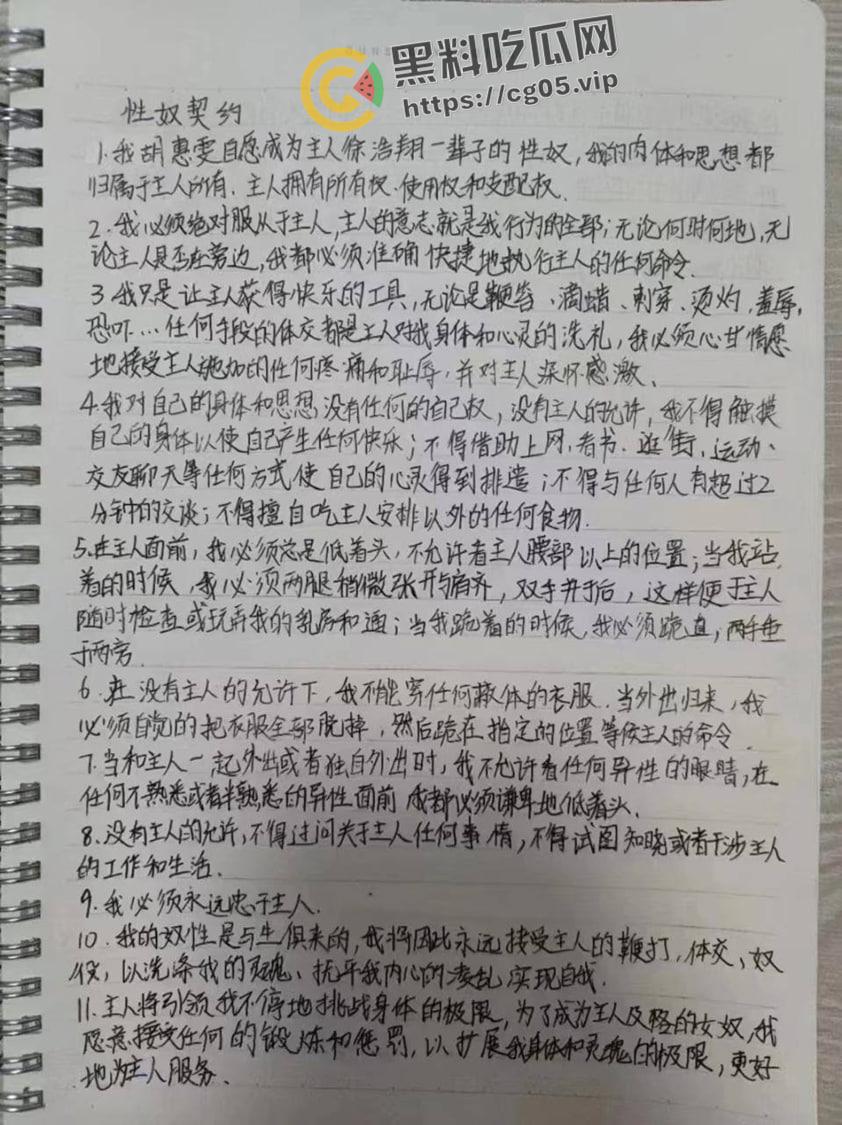 黑料吃瓜网
https://cg05.vip
性奴契约
1.我[姓名]自愿成为主人[姓名]一辈子的性奴,我的肉体和思想都
归属于主人所有.主人拥有所有权.使用权和支配权.
2.我必须绝对服从于主人,主人的意志就是我行为的全部;无论何时何地,无
论主人是否在旁边,我都必须准确快捷地执行主人的任何命令.
3.我只是让主人获得快乐的工具,无论是鞭笞、滴蜡、刺穿、烫灼,羞辱,
恐吓...任何手段的体交都是主人对我身体和心灵的洗礼,我必须心甘情愿
地接受主人施加的任何疼痛和耻辱,并对主人深怀感激、
4.我对自己的身体和思想没有任何的自己权,没有主人的允许,我不得触摸
自己的身体以使自己产生任何快乐;不得借助上网.看书.逛街,运动、
交友聊天等任何方式使自己的心灵得到排遣;不得与任何人有超过2
分钟的交谈;不得擅自吃主人安排以外的任何食物.
5.在主人面前,我必须总是低着头,不允许看主人腰部以上的位置;当我站
着的时候,我必须两腿稍微张开与肩齐,双手并于后,这样便于主人
随时检查或玩弄我的乳房和通;当我跪着的时候,我必须跪直,两手垂
于两旁.
6.在没有主人的允许下,我不能穿任何蔽体的衣服.当外出归来,我
必须自觉的把衣服全部脱掉,然后跪在指定的位置等候主人的命令.
7.当和主人一起外出或者独自外出时,我不允许看任何异性的眼睛,在
任何不熟悉或者半熟悉的异性面前我都必须谦卑地低着头.
8.没有主人的允许,不得过问关于主人任何事情,不得试图知晓或者干涉主人
的工作和生活.
9.我必须永远忠于主人.
10.我的奴性是与生俱来的,我将因此永远接受主人的鞭打,体交、奴
役,以洗涤我的灵魂、抚平我内心的凌乱,实现自我.
11.主人将引领我不停地挑战身体的极限,为了成为主人及格的女奴,我
愿意接受任何的锻炼和惩罚,以扩展我身体和灵魂的极限,更好
地为主人服务.